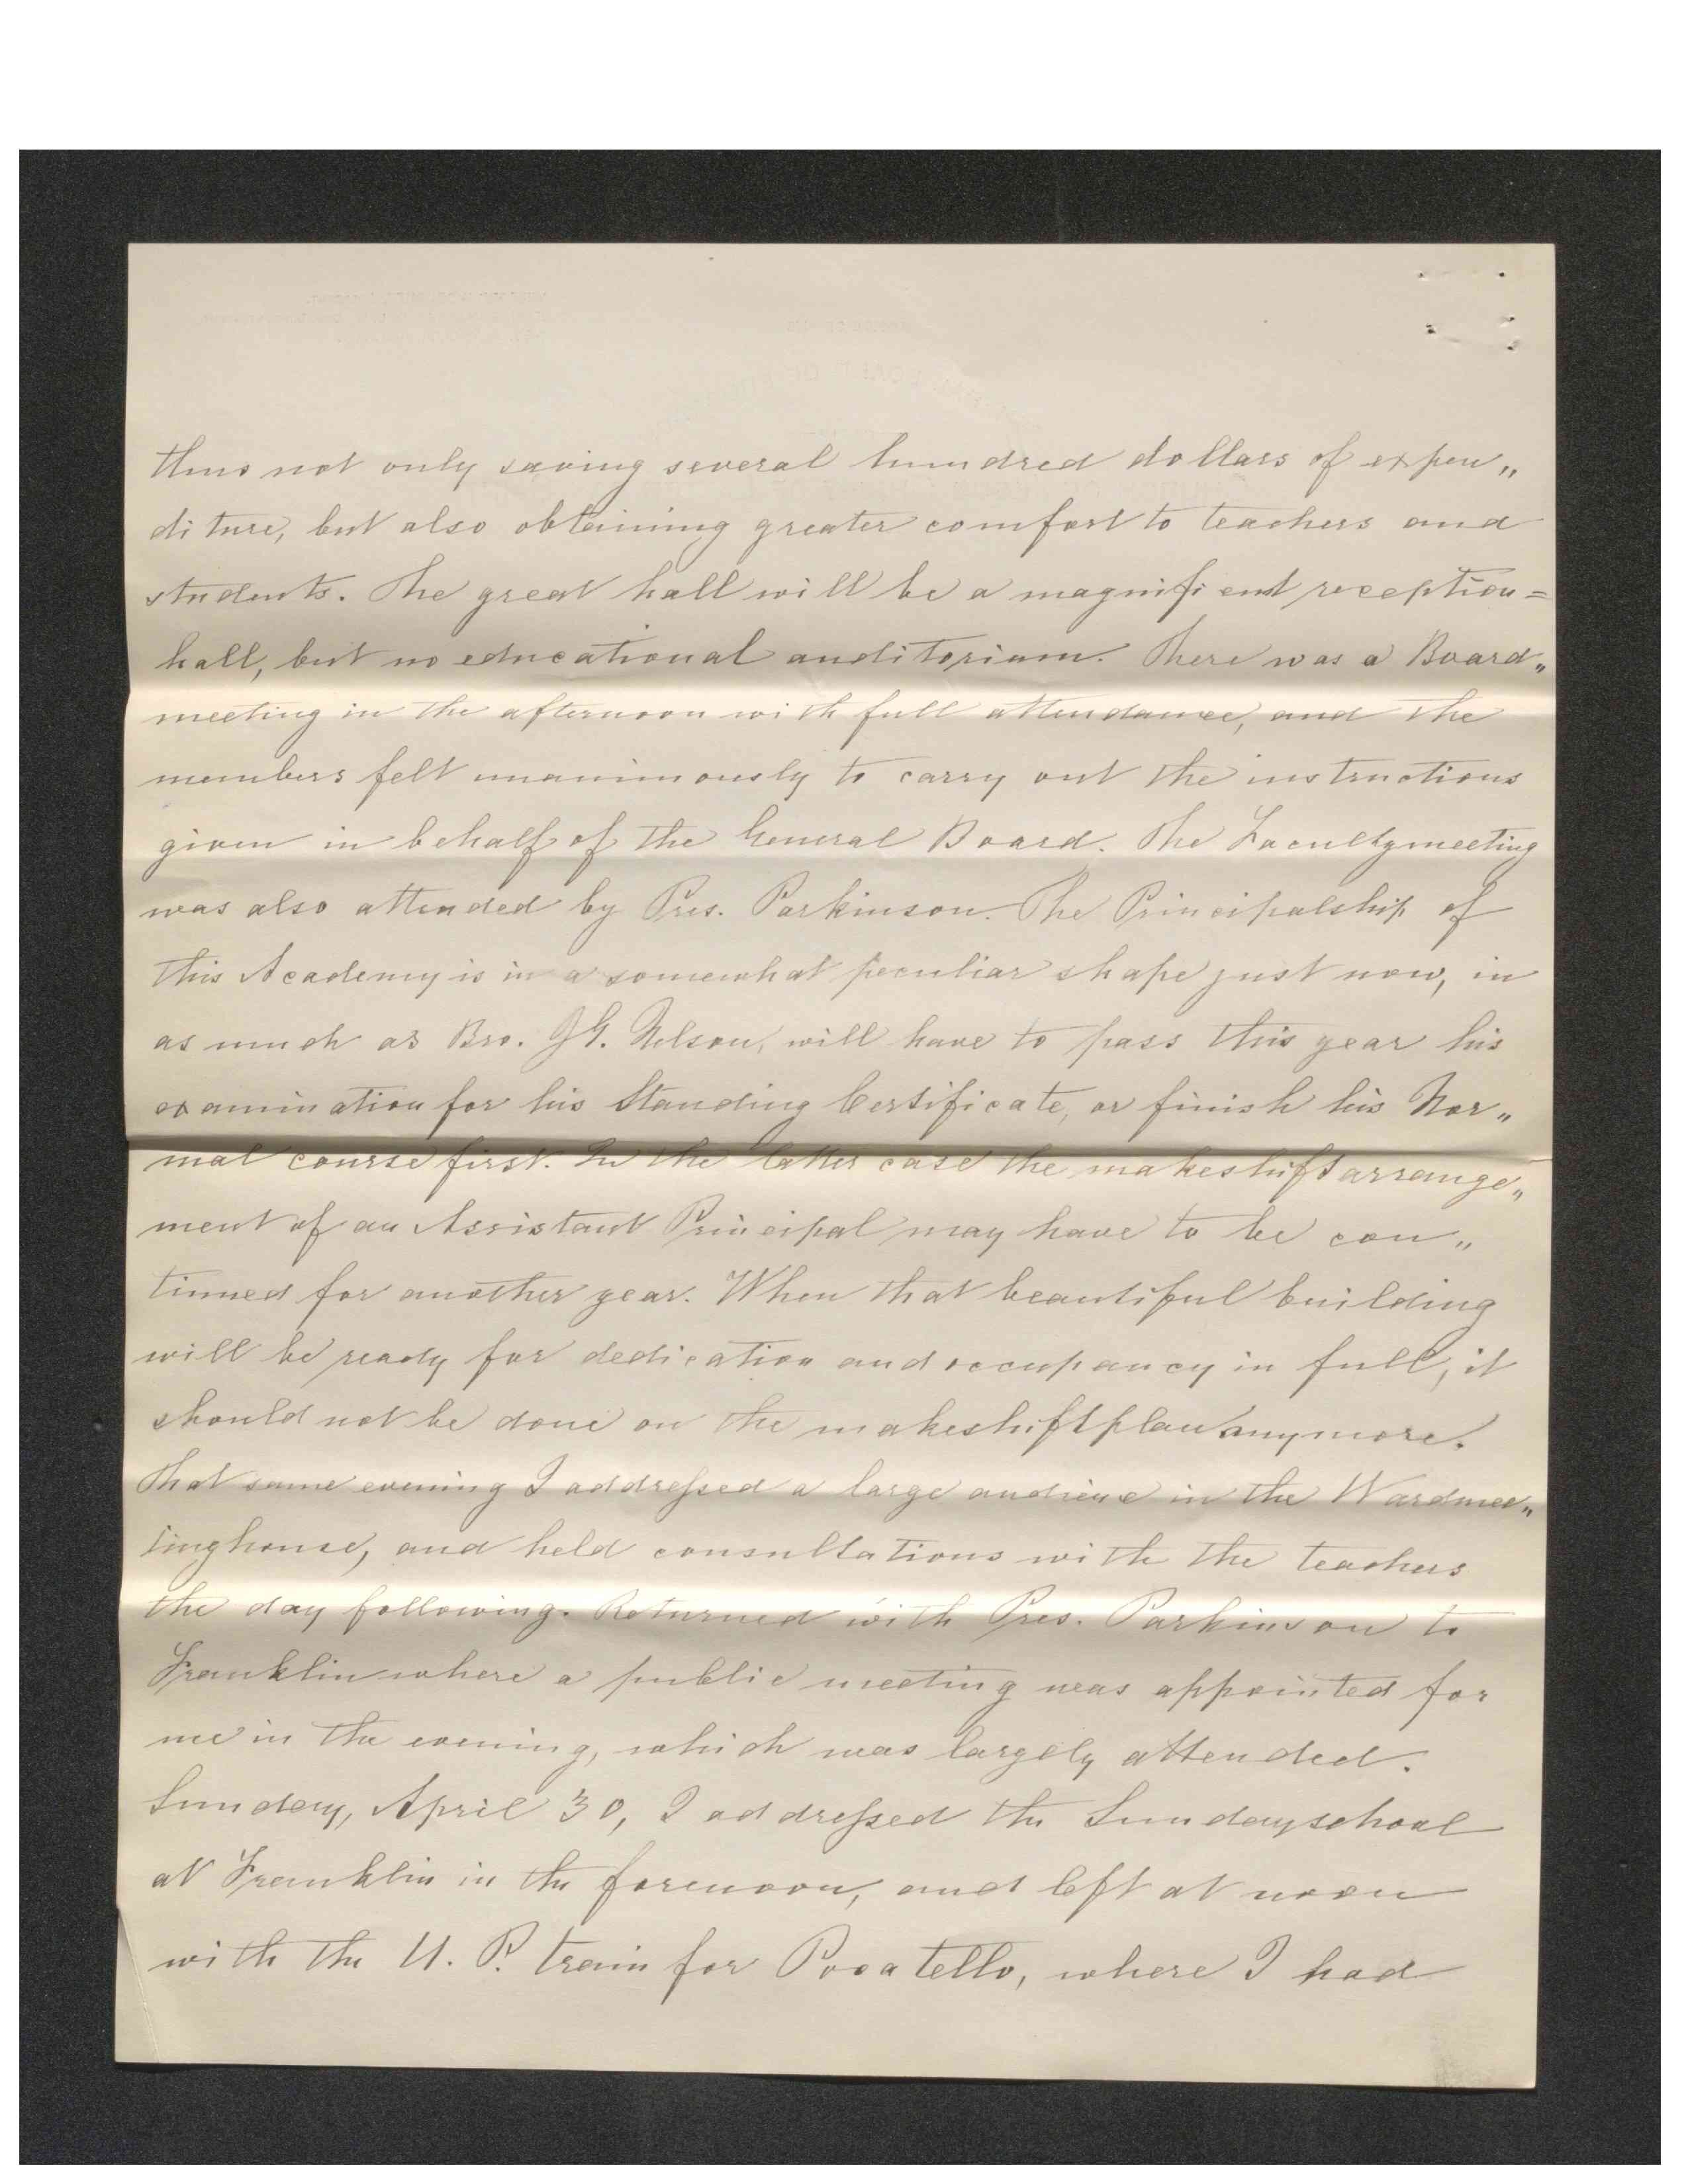 thus not only saving several hundred dollars of expen„
diture, but also obtaining greater comfort to teachers and
students. The great hall will be a magnifient reception=
hall, but no educational auditorium. There was a Board„
meeting in the afternoon with full attendance, and the
members felt unanimously to carry out the instructions
given in behalf of the General Board. The Facultymeeting
was also attended by Pres. Parkinson. The Principalship of
this Academy is in a somewhat peculiar shape just now, in
as much as Bro. J.G. Nelson, will have to pass this year his
examination for his Standing Certificate, or finish his Nor„
mal course first. In the latter case the makeshiftarrange„
ment of an Assistant Principal may have to be con„
tinued for another year. When that beautiful building
will be ready for dedication and occupancy in full, it
should not be done on the makeshiftplan anymore.
That same evening I addressed a large audience in the Wardmee„
tinghouse, and held consultations with the teachers
the day following. Returned with Pres. Parkinson to
Franklin where a public meeting was appointed for
me in the evening, which was largely attended.
Sunday, April 30, I addressed the Sundayschool
at Franklin in the forenoon, and left at noon
with the U. P. train for Pocatello, where I had